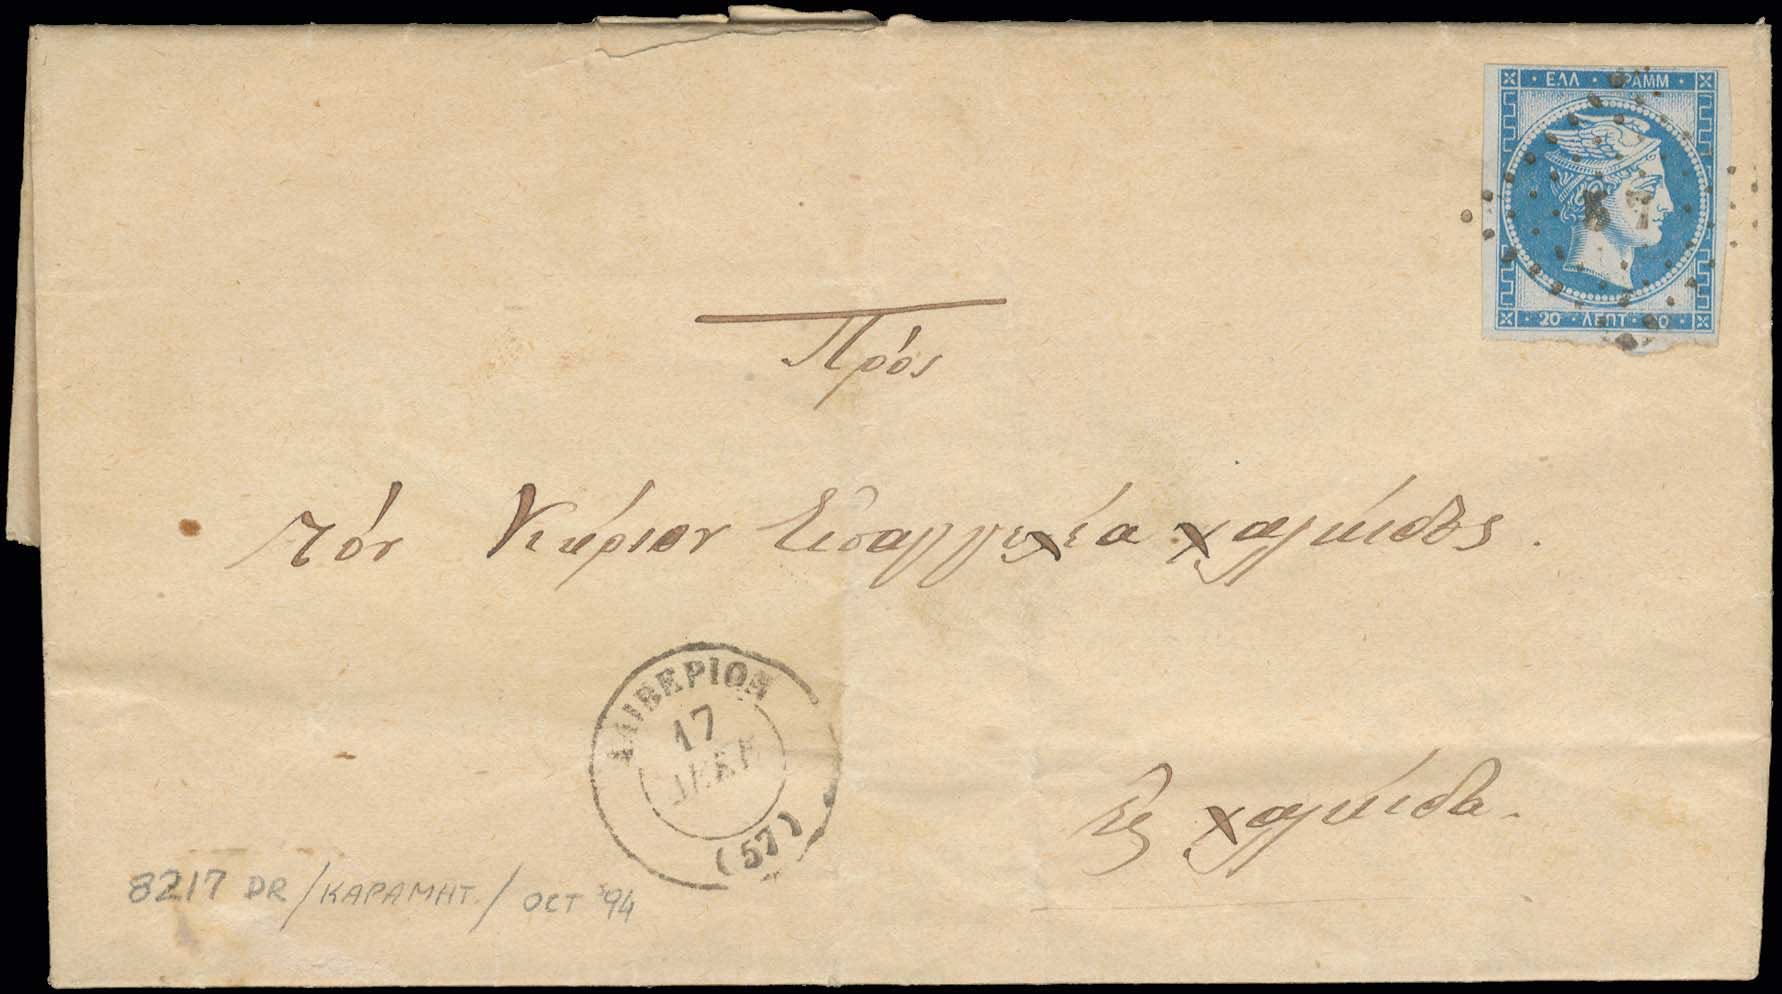 ΕΛΛ · ΓΡΑΜΜ
57
20 · ΛΕΠΤ · 20
Πρός
τόν Κύριον Εἰσαγγελέα Χαλκίδος.
ΑΛΙΒΕΡΙΟΝ
17
ΔΕΚΕ
(57)
Ες Χαλκίδα.
8217 DR / ΚΑΡΑΜΗΤ. / OCT '94